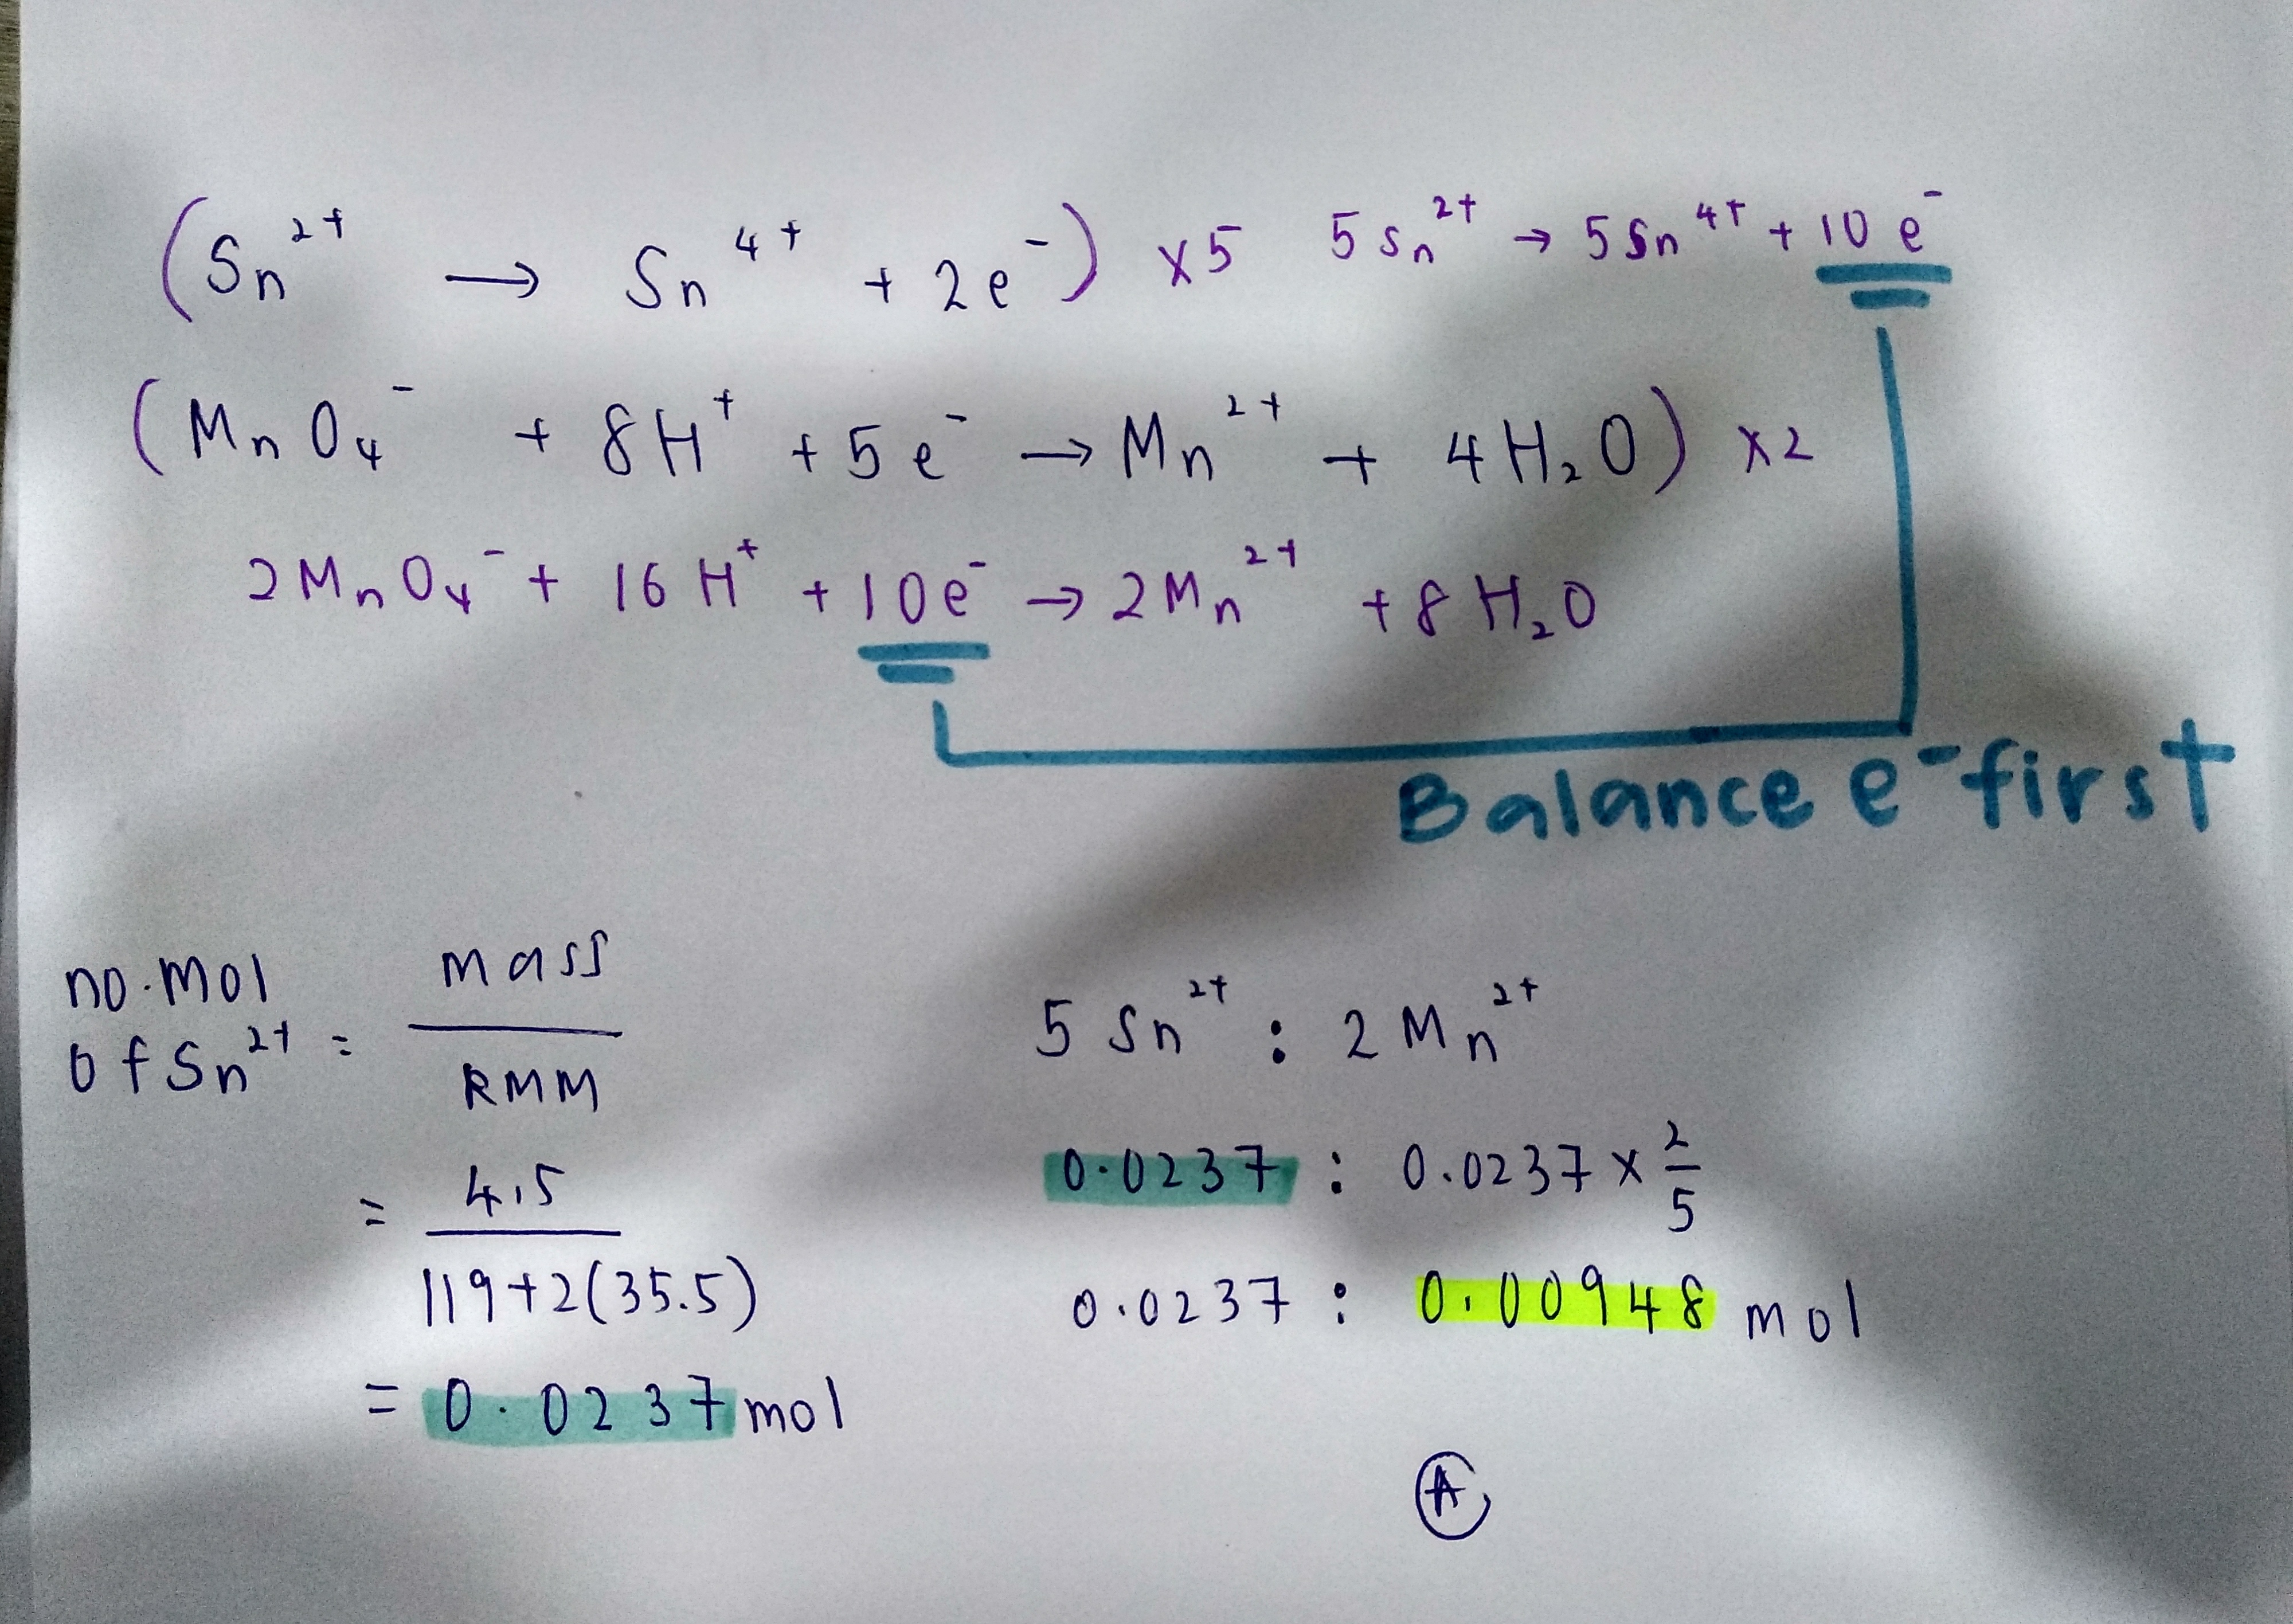 (Sn²⁺ → Sn⁴⁺ + 2e⁻) x5 5Sn²⁺ → 5Sn⁴⁺ + 10e⁻
(MnO₄⁻ + 8H⁺ + 5e⁻ → Mn²⁺ + 4H₂O) x2
2MnO₄⁻ + 16H⁺ + 10e⁻ → 2Mn²⁺ + 8H₂O
Balance e⁻ first
no. mol
of Sn²⁺ =
mass
RMM
= 4.5
119+2(35.5)
= 0.0237 mol
5Sn²⁺ : 2Mn²⁺
0.0237 : 0.0237 x 2/5
0.0237 : 0.00948 mol
A